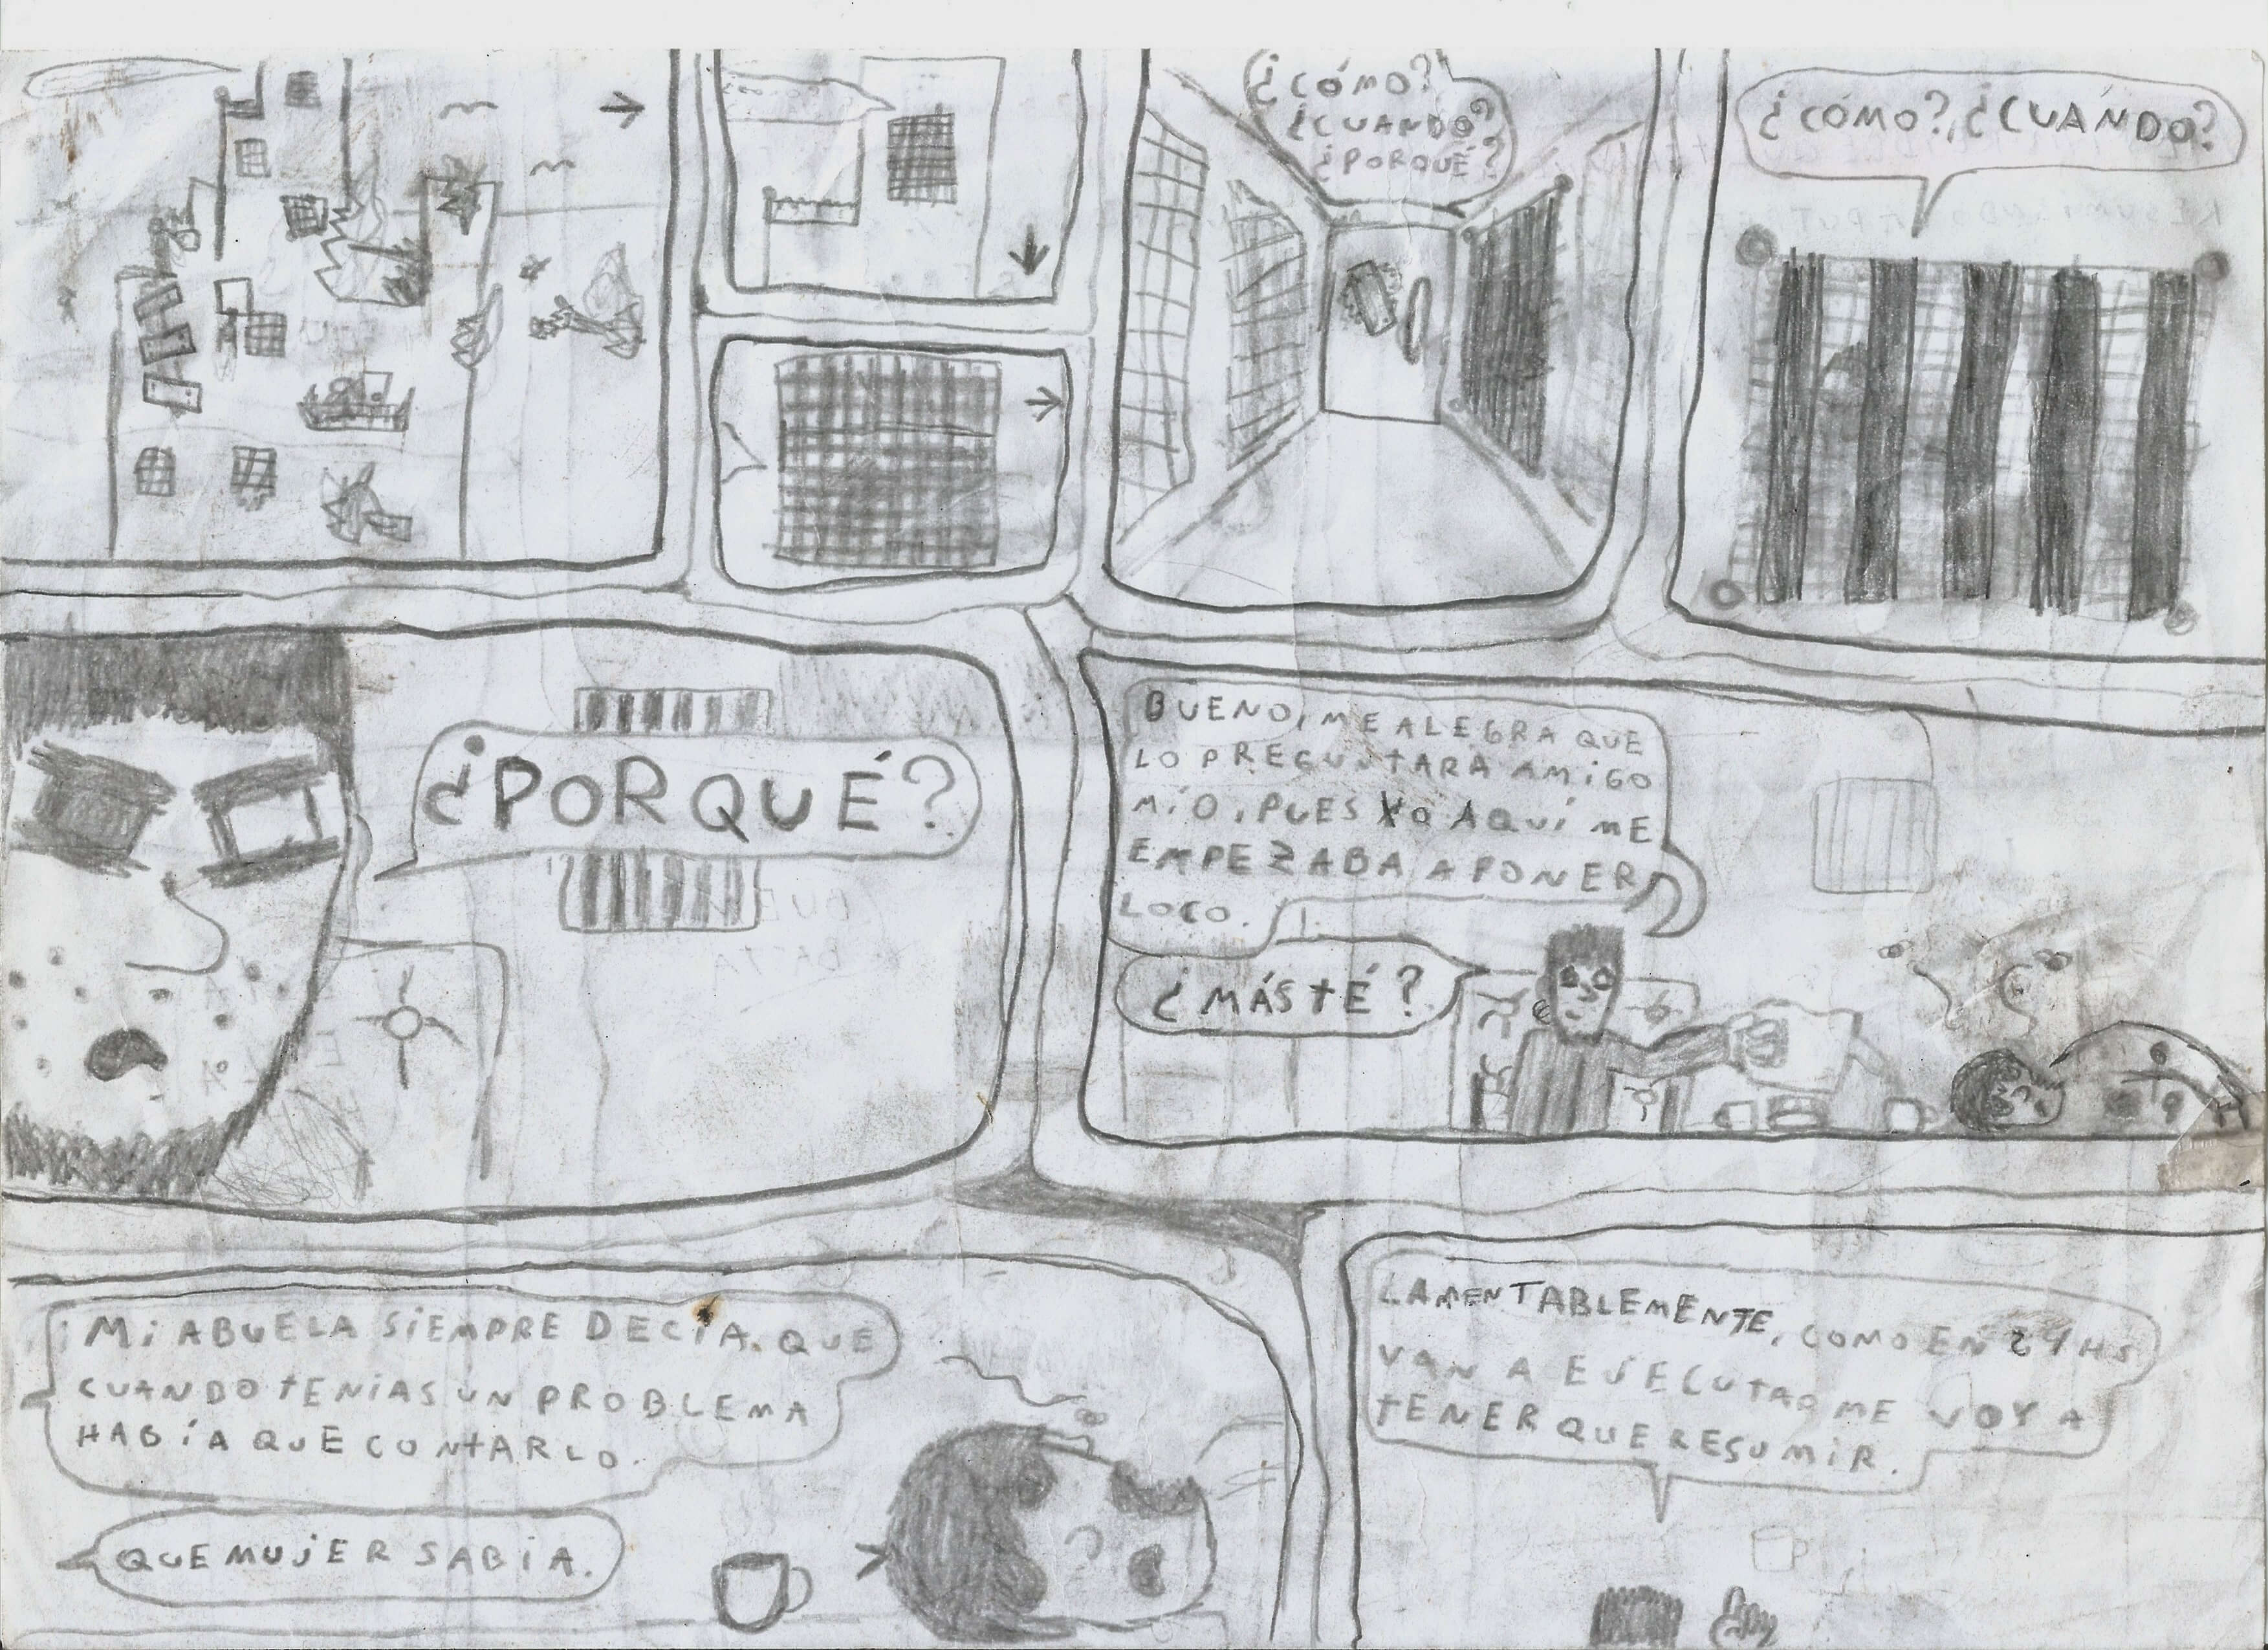 ¿CÓMO?
¿CUANDO?
¿PORQUÉ?
¿CÓMO?, ¿CUÁNDO?
¿PORQUÉ?
BUENO, ME ALEGRA QUE
LO PREGUNTARA AMIGO
MÍO, PUES YO AQUÍ ME
EMPEZABA A PONER
LOCO.
¿MÁS TÉ?
MI ABUELA SIEMPRE DECÍA QUE
CUANDO TENÍAS UN PROBLEMA
HABÍA QUE CONTARLO.
QUE MUJER SABIA.
LAMENTABLEMENTE, COMO EN 24 HS
VAN A EJECUTARME VOY A
TENER QUE RESUMIR.